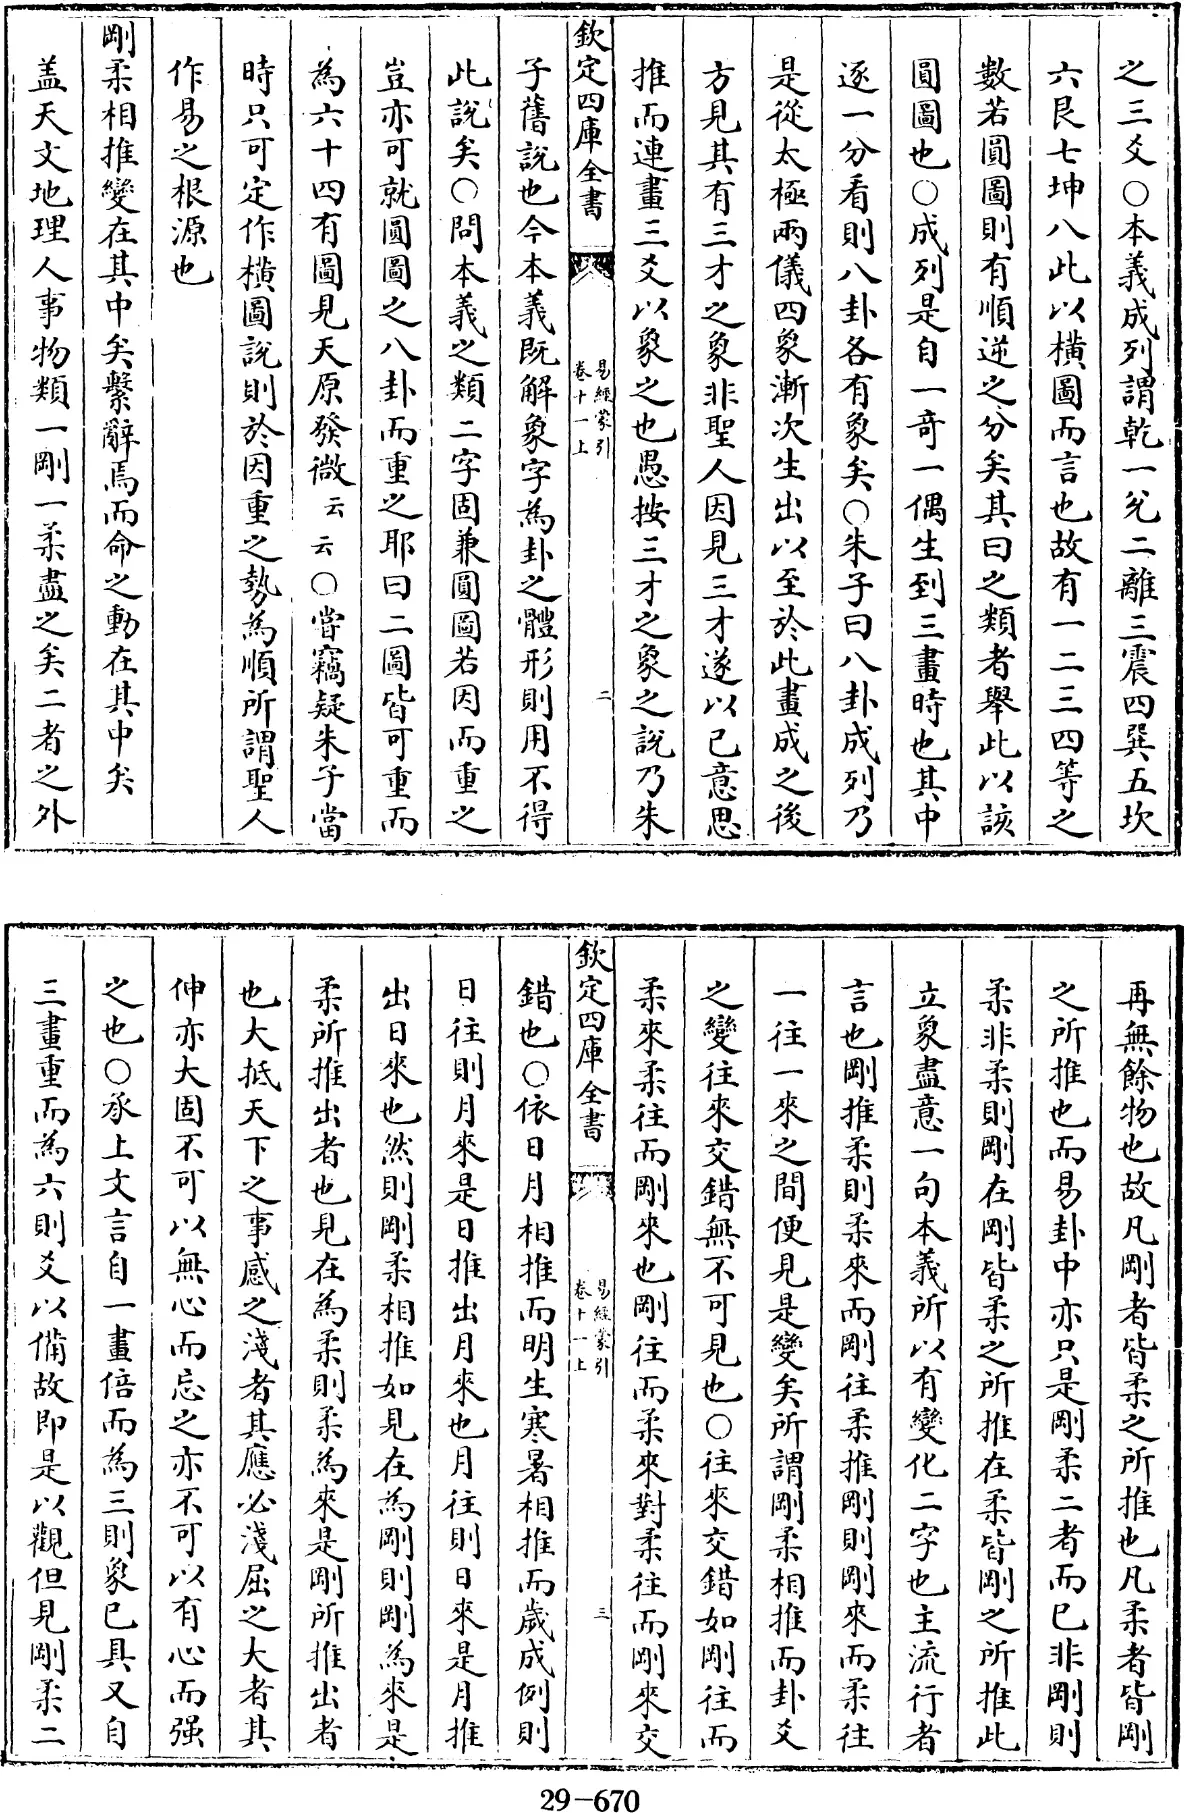 之三爻○本義成列謂乾一兊二離三震四巽五坎
六艮七坤八此以橫圖而言也故有一二三四等之
數若圓圖則有順逆之分矣其曰之類者舉此以該
圓圖也○成列是自一奇一偶生到三畫時也其中
逐一分看則八卦各有象矣○朱子曰八卦成列乃
是從太極兩儀四象漸次生出以至於此畫成之後
方見其有三才之象非聖人因見三才遂以已意思
推而連畫三爻以象之也愚按三才之象之說乃朱
欽定四庫全書
易經蒙引
卷十一上
二
子舊說也今本義既解象字為卦之體形則用不得
此說矣○問本義之類二字固兼圓圖若因而重之
豈亦可就圓圖之八卦而重之耶曰二圖皆可重而
為六十四有圖見天原發微云云○嘗竊疑朱子當
時只可定作橫圖說則於因重之勢為順所謂聖人
作易之根源也
剛柔相推變在其中矣繫辭焉而命之動在其中矣
盖天文地理人事物類一剛一柔盡之矣二者之外
再無餘物也故凡剛者皆柔之所推也凡柔者皆剛
之所推也而易卦中亦只是剛柔二者而已非剛則
柔非柔則剛在剛皆柔之所推在柔皆剛之所推此
立象盡意一句本義所以有變化二字也主流行者
言也剛推柔則柔來而剛往柔推剛則剛來而柔往
一往一來之間便見是變矣所謂剛柔相推而卦爻
之變往來交錯無不可見也○往來交錯如剛往而
柔來柔往而剛來也剛往而柔來對柔往而剛來交
欽定四庫全書
易經蒙引
卷十一上
三
錯也○依日月相推而明生寒暑相推而歲成例則
日往則月來是日推出月來也月往則日來是月推
出日來也然則剛柔相推如見在為剛則剛為來是
柔所推出者也見在為柔則柔為來是剛所推出者
也大抵天下之事感之淺者其應必淺屈之大者其
伸亦大固不可以無心而忘之亦不可以有心而强
之也○承上文言自一畫倍而為三則象已具又自
三畫重而為六則爻以備故即是以觀但見剛柔二
29-670